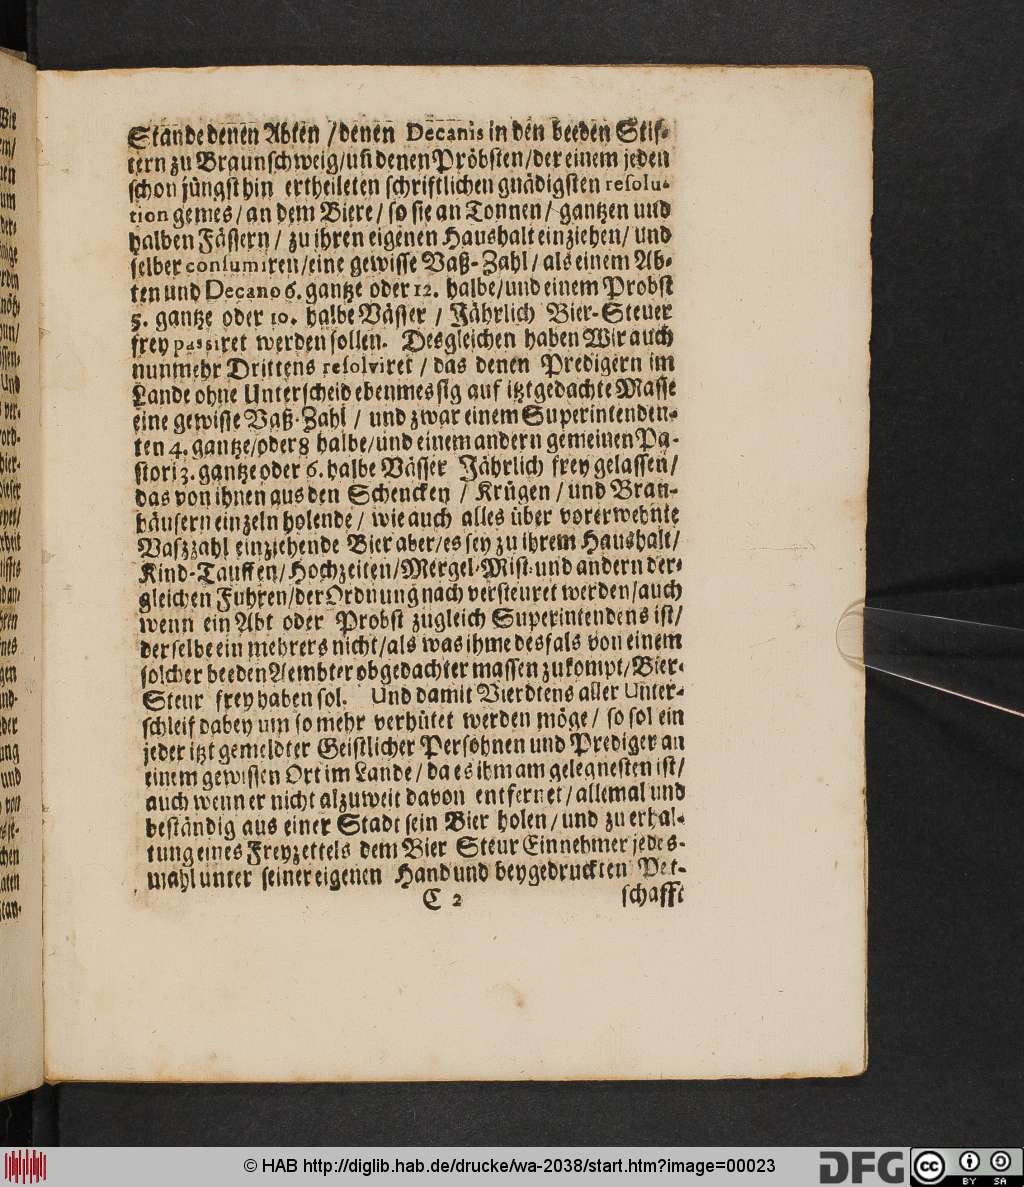 Stande denen Abten / denen Decanis in den beeden Stif-
tern zu Braunschweig / uñ denen Pröbsten / der einem jeden
schon jüngst hin ertheileten schrifftlichen gnädigsten resolu-
tion gemes / an dem Biere / so sie an Tonnen / gantzen und
halben Fässern / zu ihren eigenen Haushalt einziehen / und
selber consumiren / eine gewisse Vaß-Zahl / als einem Ab-
ten und Decano 6. gantze oder 12. halbe / und einem Probst
5. gantze oder 10. halbe Vässer / Jährlich Bier-Steuer
frey passiret werden sollen. Desgleichen haben Wir auch
nunmehr Drittens resolviret / das denen Predigern im
Lande ohne Unterscheid ebenmessig auf itztgedachte Masse
eine gewisse Vaß-Zahl / und zwar einem Superintenden-
ten 4. gantze / oder 8 halbe / und einem andern gemeinen Pa-
stori 3. gantze oder 6. halbe Vässer Jährlich frey gelassen /
das von ihnen aus den Schencken / Krügen / und Brau-
häusern einzeln holende / wie auch alles über vorerwehnte
Vaszzahl einziehende Bier aber / es sey zu ihrem Haushalt /
Kind-Tauffen / Hochzeiten / Mergel-Mist-und andern der-
gleichen Fuhren / der Ordnung nach versteuret werden / auch
wenn ein Abt oder Probst zugleich Superintendens ist /
derselbe ein mehrers nicht / als was ihme desfals von einem
solcher beeden Aembter obgedachter massen zukompt / Bier-
Steur frey haben sol. Und damit Vierdtens aller Unter-
schleif dabey um so mehr verhütet werden möge / so sol ein
jeder itzt gemeldter Geistlicher Persohnen und Prediger an
einem gewissen Ort im Lande / da es ihm am gelegnesten ist /
auch wenn er nicht alzuweit davon entfernet / allemal und
beständig aus einer Stadt sein Bier holen / und zu erhal-
tung eines Freyzettels dem Bier Steur Einnehmer jedes-
mahl unter seiner eigenen Hand und beygedruckten Pet-
C 2 schafft
© HAB http://diglib.hab.de/drucke/wa-2038/start.htm?image=00023
DFG
cc BY SA